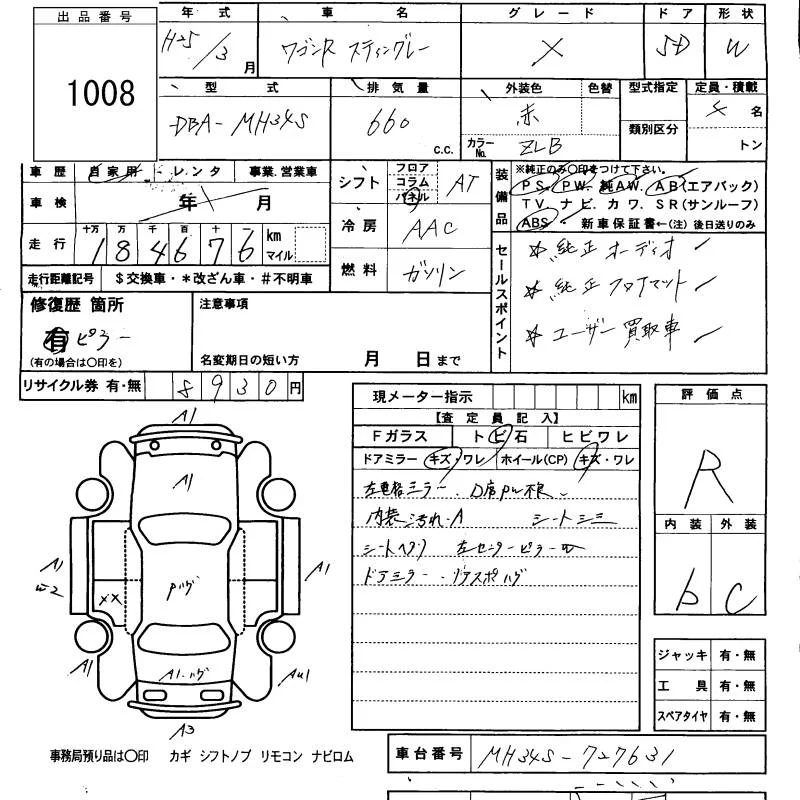 出品番号
1008
年式 車名 グレード ドア 形状
H25/3月 ワゴンR スティングレー X 5D W
型式 排気量 外装色 色替 型式指定 定員・積載
DBA-MH34S 660 c.c. 赤 類別区分 4名
カラーNo. ZLB トン
車歴 自家用・レンタ 事業.営業車
車検 年 月
走行 十万 万 千 百 十
184676 km マイル
走行距離記号 $交換車・*改ざん車・#不明車
シフト フロア コラム パネル AT
冷房 AAC
燃料 ガソリン
装備品 ※純正のみ〇印をつけて下さい。
PS. PW. 純AW. AB(エアバック)
TV. ナビ. カワ. SR(サンルーフ)
ABS. 新車保証書←(注) 後日送りのみ
セールスポイント
☆純正オーディオ
☆純正フロアマット
☆ユーザー買取車
修復歴 箇所
有 ピラー
(有の場合は〇印を)
注意事項
名変期日の短い方 月 日まで
リサイクル券 有・無 8930円
現メーター指示 km
【査定員記入】
Fガラス トビ石 ヒビワレ
ドアミラー キズ・ワレ ホイール(CP) キズ・ワレ
左電格ミラー. D席PW不良
内装汚れ-A シートシミ
シートヘタリ 左センターピラーW
ドアミラー・リアスポハゲ
評価点
R
内装 外装
b C
ジャッキ 有・無
工具 有・無
スペアタイヤ 有・無
A1
A1
A1
A1
XX
Pハゲ
A1
A1
A1.ハゲ
A3
事務局預り品は〇印 カギ シフトノブ リモコン ナビロム
車台番号 MH34S-727631